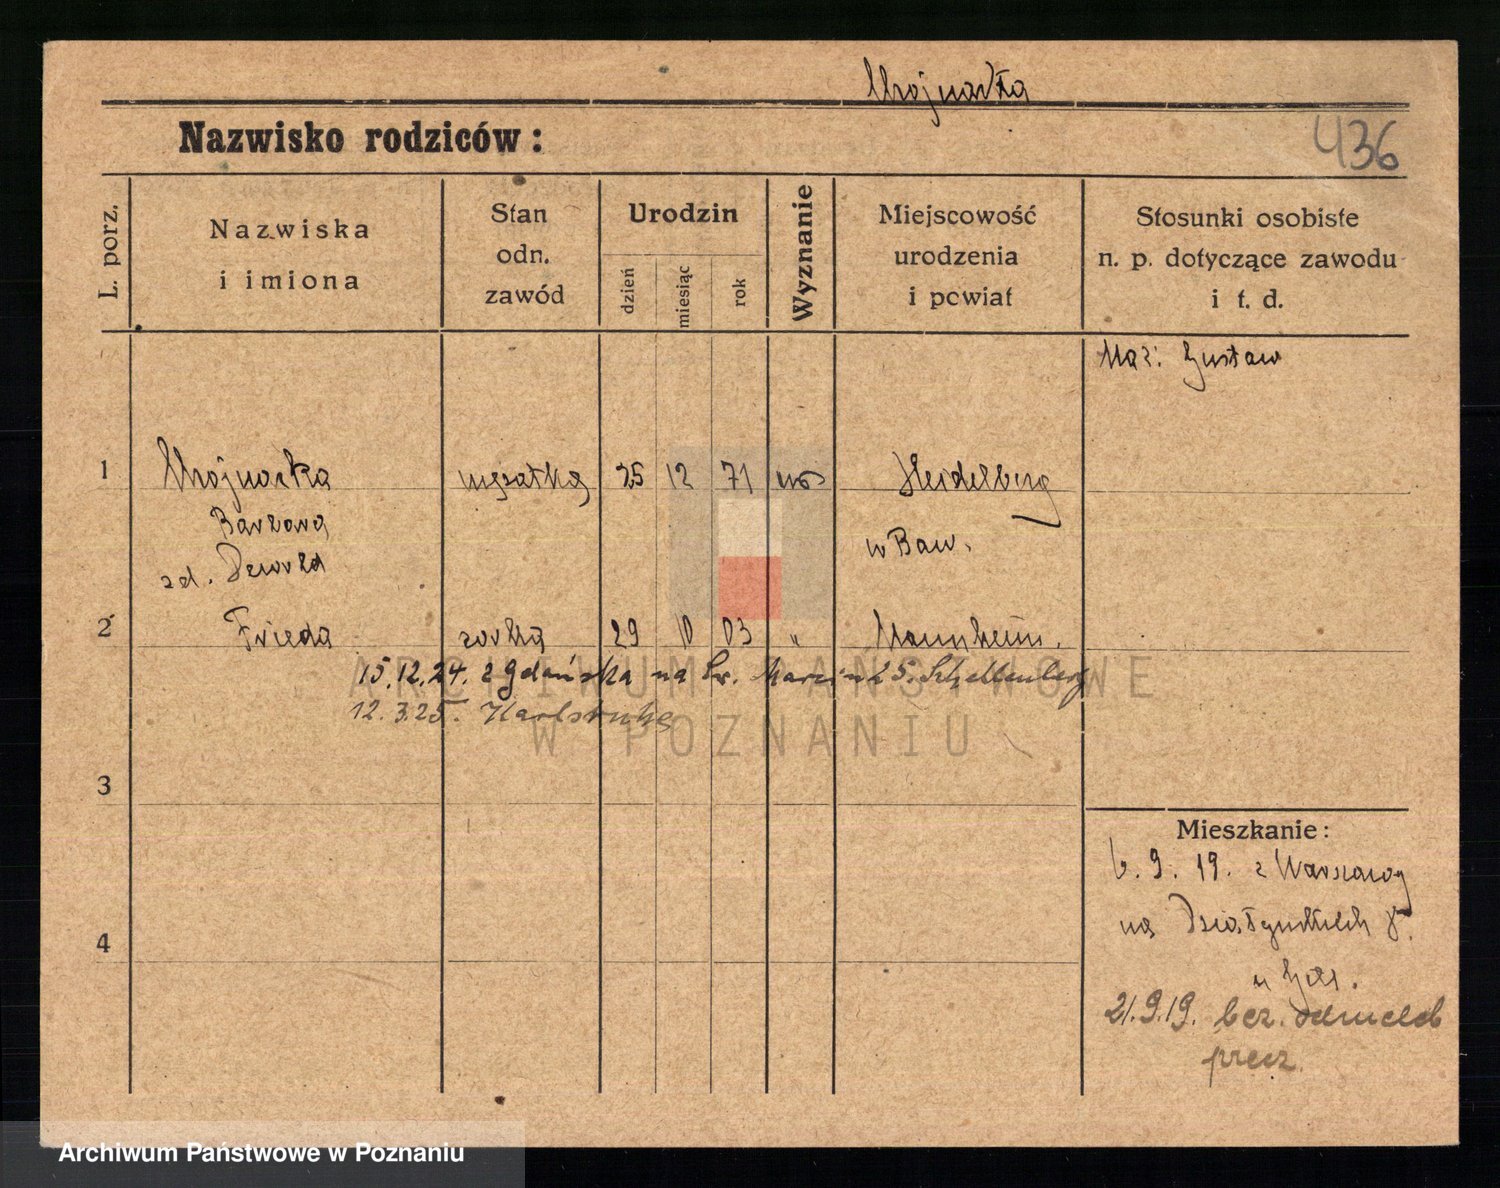 Nazwisko rodziców:
436
L. porz.
Nazwiska
i imiona
Stan
odn.
zawód
Urodzin
dzień
miesiąc
rok
Wyznanie
Miejscowość
urodzenia
i powiat
Stosunki osobiste
n. p. dotyczące zawodu
i t. d.
Mąż: Gustaw
1
mężatka 25 12 71
Heidelberg
Barbara
w Baw.
zd.
2 Frieda córka 29 10 03 " Mannheim.
15.12.24. z Gdańska na Św. Marcin 25. Schellenberg
12.3.25. Karlsruhe
3
4
Mieszkanie:
6. 9. 19. z Warszawy
na Działyńskich 8.
u
21.9.19. bez.
precz
ARCHIWUM PAŃSTWOWE
W POZNANIU
Archiwum Państwowe w Poznaniu